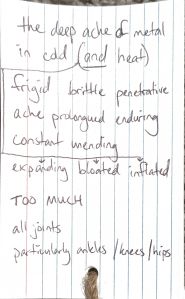 the deep ache of metal
in cold (and heat)
frigid brittle penetrative
ache prolongued enduring
constant mending
expanding bloated inflated
TOO MUCH
all joints
particularly ankles/knees/hips